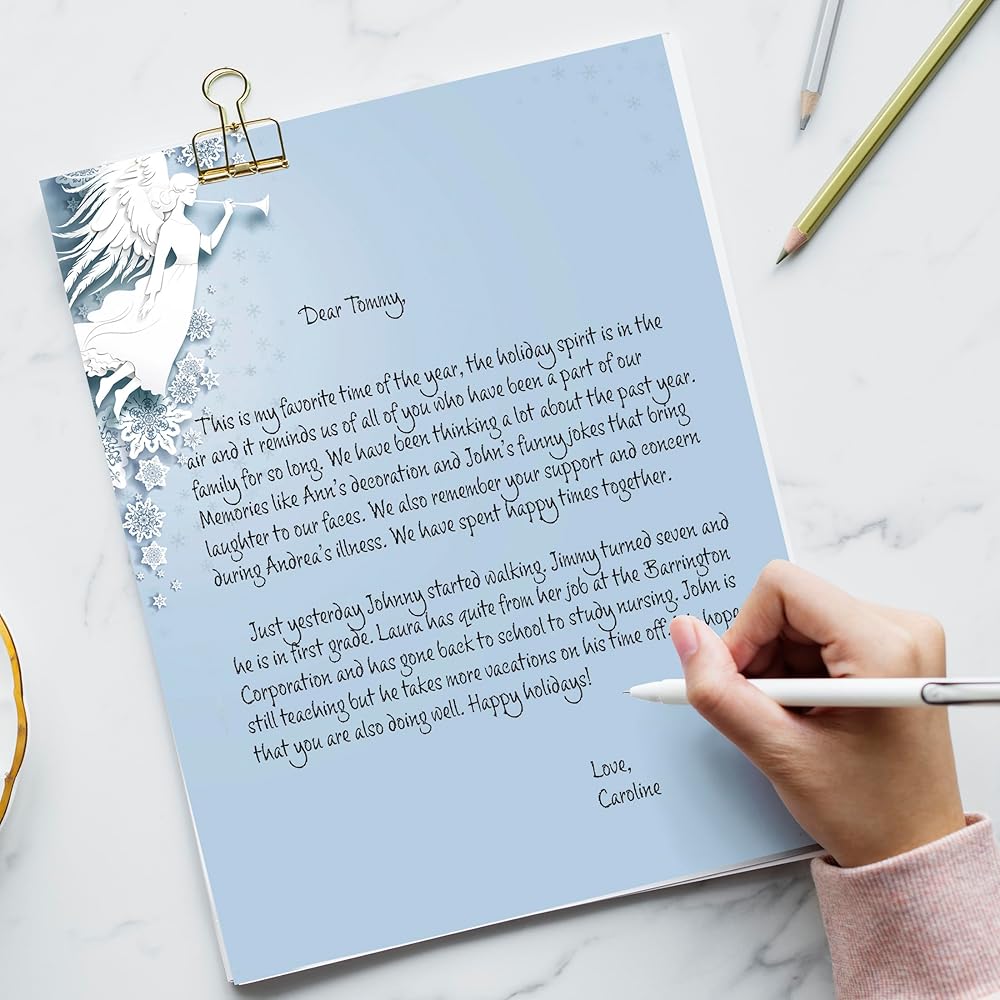 Dear Tommy,
This is my favorite time of the year, the holiday spirit is in the
air and it reminds us of all of you who have been a part of our
family for so long. We have been thinking a lot about the past year.
Memories like Ann's decoration and John's funny jokes that bring
laughter to our faces. We also remember your support and concern
during Andrea's illness. We have spent happy times together.
Just yesterday Johnny started walking, Jimmy turned seven and
he is in first grade. Laura has quite from her job at the Barrington
Corporation and has gone back to school to study nursing. John is
still teaching but he takes more vacations on his time off. hope
that you are also doing well. Happy holidays!
Love,
Caroline